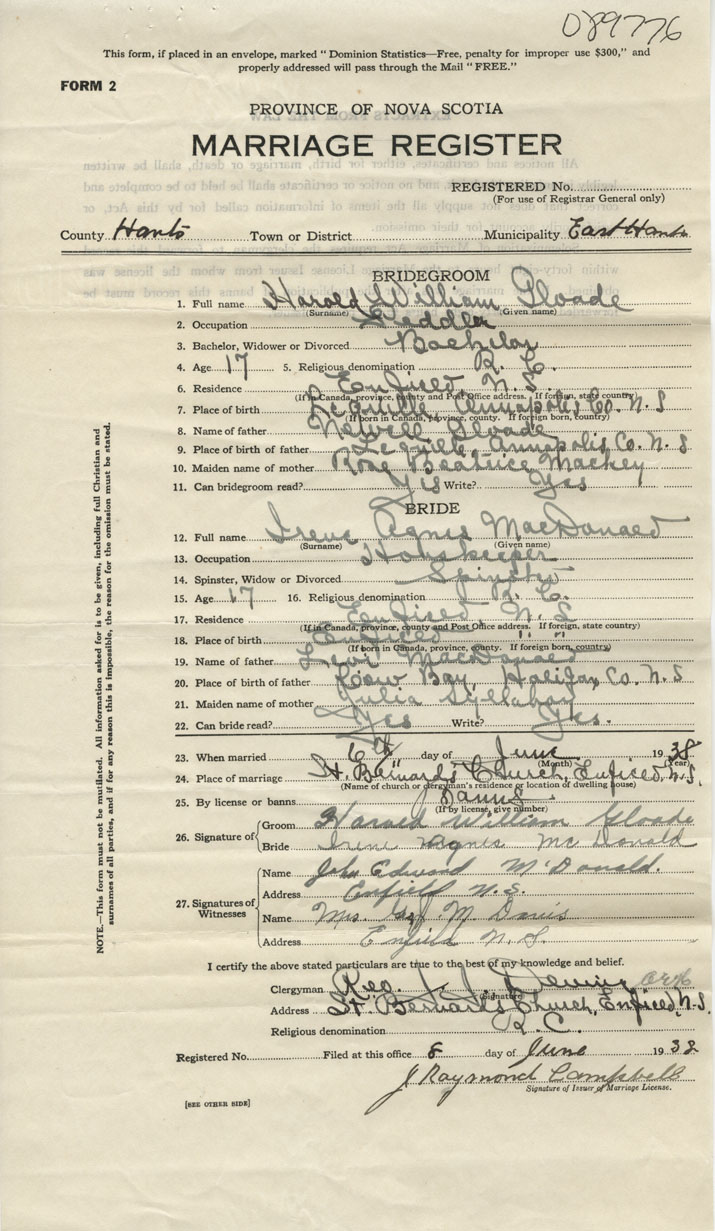 089776
This form, if placed in an envelope, marked "Dominion Statistics—Free, penalty for improper use $300," and
properly addressed will pass through the Mail "FREE."
FORM 2
PROVINCE OF NOVA SCOTIA
MARRIAGE REGISTER
REGISTERED No.
(For use of Registrar General only)
County Hants Town or District Municipality East Hants
BRIDEGROOM
1. Full name Harold William Gloade
(Surname) (Given name)
2. Occupation Peddler
3. Bachelor, Widower or Divorced Bachelor
4. Age 17 5. Religious denomination R. C.
6. Residence Enfield, N. S.
(If in Canada, province, county and Post Office address. If foreign, state country)
7. Place of birth Lequille Annapolis Co. N. S
(If born in Canada, province, county. If foreign born, country)
8. Name of father Newell Gloade
9. Place of birth of father Lequille Annapolis Co. N. S
10. Maiden name of mother Rose Beatrice Mackey
11. Can bridegroom read? Yes Write? Yes
BRIDE
12. Full name Irene Agnes MacDonald
(Surname) (Given name)
13. Occupation Housekeeper
14. Spinster, Widow or Divorced Spinster
15. Age 17 16. Religious denomination R. C.
17. Residence Enfield N. S
(If in Canada, province, county and Post Office address. If foreign, state country)
18. Place of birth Enfield " "
(If born in Canada, province, county. If foreign born, country)
19. Name of father Levi MacDonald
20. Place of birth of father Cow Bay, Halifax Co. N. S
21. Maiden name of mother Julia Syllaboy
22. Can bride read? Yes Write? Yes.
23. When married 6th day of June 1938
(Month) (Year)
24. Place of marriage St. Bernards Church, Enfield, N. S.
(Name of church or clergyman's residence or location of dwelling house)
25. By license or banns Banns
(If by license, give number)
26. Signature of Groom Harold William Gloade
Bride Irene Agnes McDonald
27. Signatures of Witnesses Name John Edward McDonald.
Address Enfield N. S.
Name Mrs. M Davis
Address Enfield N. S.
I certify the above stated particulars are true to the best of my knowledge and belief.
Clergyman Rev. J. J.
(Signature)
Address St. Bernards Church, Enfield, N. S.
Religious denomination R. C.
Registered No. Filed at this office 8 day of June 1938
J Raymond Campbell
Signature of Issuer of Marriage License.
[SEE OTHER SIDE]
NOTE.—This form must not be mutilated. All information asked for is to be given, including full Christian and
surnames of all parties, and if for any reason this is impossible, the reason for the omission must be stated.